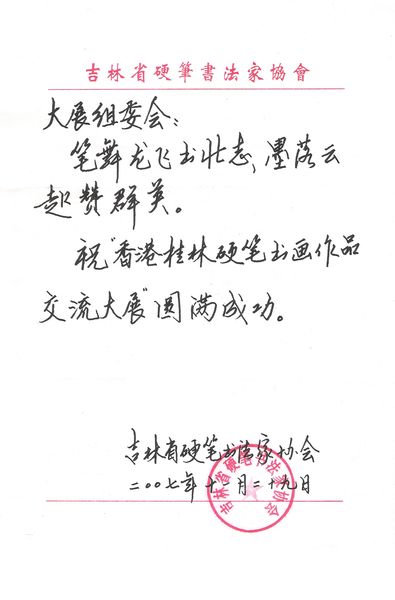 吉林省硬筆書法家協會
大展组委会:
笔舞龙飞书壮志、墨落云
起赞群英。
祝“香港桂林硬笔书画作品
交流大展”圆满成功。
吉林省硬笔书法家协会
二〇〇七年十一月二十九日
吉林省硬笔书法家协会